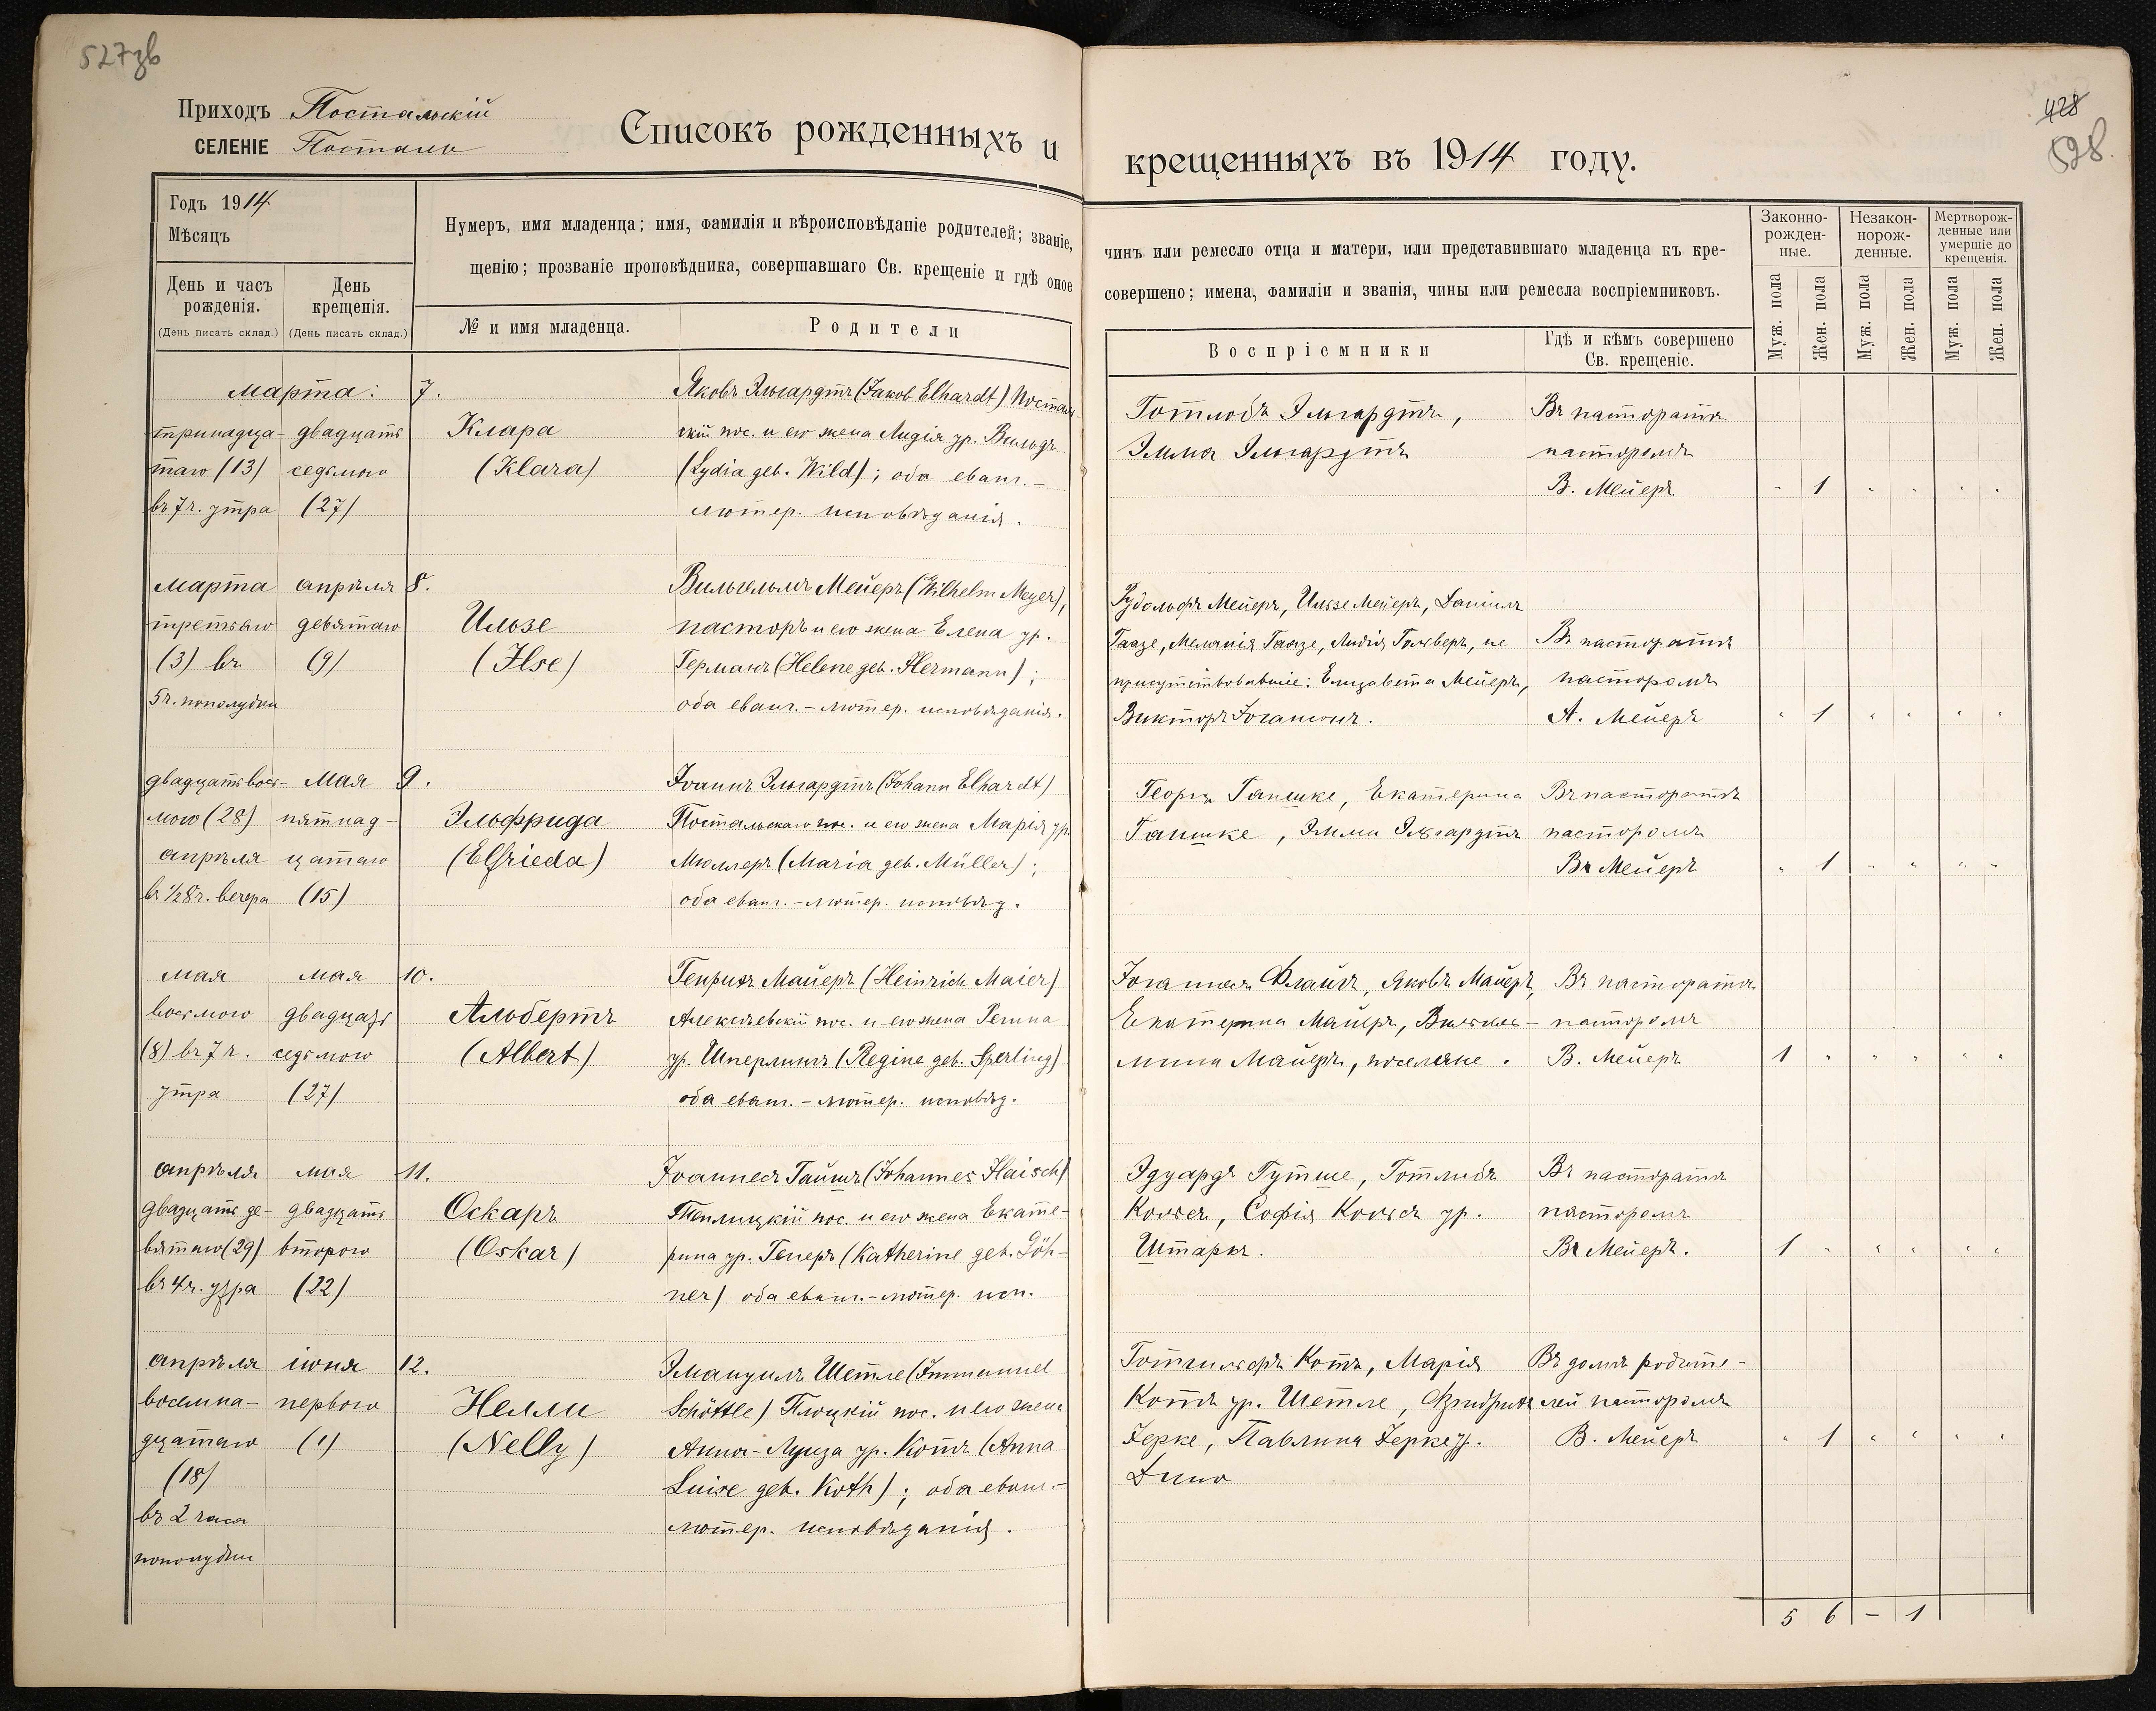 527зв
428
528.
Приходъ Постальскій
СЕЛЕНІЕ Посталь
Списокъ рожденныхъ и крещенныхъ въ 1914 году.
Годъ 1914
Мѣсяцъ
День и часъ рожденія.
(День писать склад.)
День крещенія.
(День писать склад.)
Нумеръ, имя младенца; имя, фамилія и вѣроисповѣданіе родителей; званіе, чинъ или ремесло отца и матери, или представившаго младенца къ кре-
щенію; прозваніе проповѣдника, совершавшаго Св. крещеніе и гдѣ оное совершено; имена, фамиліи и званія, чины или ремесла воспріемниковъ.
№ и имя младенца.
Родители
Воспріемники
Гдѣ и кѣмъ совершено
Св. крещеніе.
Законно-
рожден-
ные.
Незакон-
норож-
денные.
Мертворож-
денные или
умершіе до
крещенія.
Муж. пола
Жен. пола
Муж. пола
Жен. пола
Муж. пола
Жен. пола
марта:
тринадца-
таго (13)
въ 7 ч. утра
двадцать
седьмого
(27)
7.
Клара
(Klara)
Яковъ Эльгардтъ (Jakob Elhardt) Посталь-
скій пос. и его жена Лидія ур. Вильдъ
(Lydia geb. Wild); оба еванг.-
лютер. исповѣданія.
Готлобъ Эльгардтъ,
Эмма Эльгардтъ
Въ пасторатѣ
пасторомъ
В. Мейеръ
- 1
марта
третьяго
(3) въ
5 ч. пополудни
апрѣля
девятаго
(9)
8.
Ильзе
(Ilse)
Вильгельмъ Мейеръ (Wilhelm Meyer),
пасторъ и его жена Елена ур.
Германъ (Helene geb. Hermann);
оба еванг.-лютер. исповѣданія.
Рудольфъ Мейеръ, Ильзе Мейеръ, Даніилъ
Гаазе, Меланія Гаазе, Лидія, не
присутствовавшіе: Елизавета Мейеръ,
Викторъ Іогансонъ.
Въ пасторатѣ
пасторомъ
А. Мейеръ
" 1
двадцать вось-
мого (28)
апрѣля
въ ½8 ч. вечера
Мая
пятнад-
цатаго
(15)
9.
Эльфрида
(Elfrieda)
Іоаннъ Эльгардтъ (Johann Elhardt)
Постальскаго пос. и его жена Марія ур.
Мюллеръ (Maria geb. Müller);
оба еванг.-лютер. исповѣд.
Георгъ Ганшке, Екатерина
Ганшке, Эмма Эльгардтъ
Въ пасторатѣ
пасторомъ
В. Мейеръ
" 1
мая
восьмого
(8) въ 7 ч.
утра
мая
двадцать
седьмого
(27)
10.
Альбертъ
(Albert)
Генрихъ Майеръ (Heinrich Maier)
Алексѣевскій пос. и его жена Регина
ур. Шперлингъ (Regine geb. Sperling)
оба еванг.-лютер. исповѣд.
Іоганнесъ Флайгъ, Яковъ Майеръ,
Екатерина Майеръ, Вильгель-
мина Майеръ, поселяне.
Въ пасторатѣ
пасторомъ
В. Мейеръ
1
апрѣля
двадцать де-
вятаго (29)
въ 4 ч. утра
мая
двадцать
второго
(22)
11.
Оскаръ
(Oskar)
Іоаннесъ Гайшъ (Johannes Haisch)
Теплицкій пос. и его жена Екате-
рина ур. Генеръ (Katherine geb. Göh-
ner) оба еванг.-лютер. исп.
Эдуардъ Гутше, Готлибъ
Софія ур.
Штаркъ.
Въ пасторатѣ
пасторомъ
В. Мейеръ.
1
апрѣля
восемна-
дцатаго
(18)
въ 2 часа
пополудни
іюня
перваго
(1)
12.
Нелли
(Nelly)
Эмануилъ Шетле (Immanuel
Schöttle) Плоцкій пос. и его жена
Анна-Луиза ур. Котъ (Anna
Luise geb. Koth); оба еванг.-
лютер. исповѣданія.
Готгильфъ Котъ, Марія
Котъ ур. Шетле, Фридрихъ
Герке, Павлина Герке ур.
Въ домѣ родите-
лей пасторомъ
В. Мейеръ
" 1
5 6 - 1